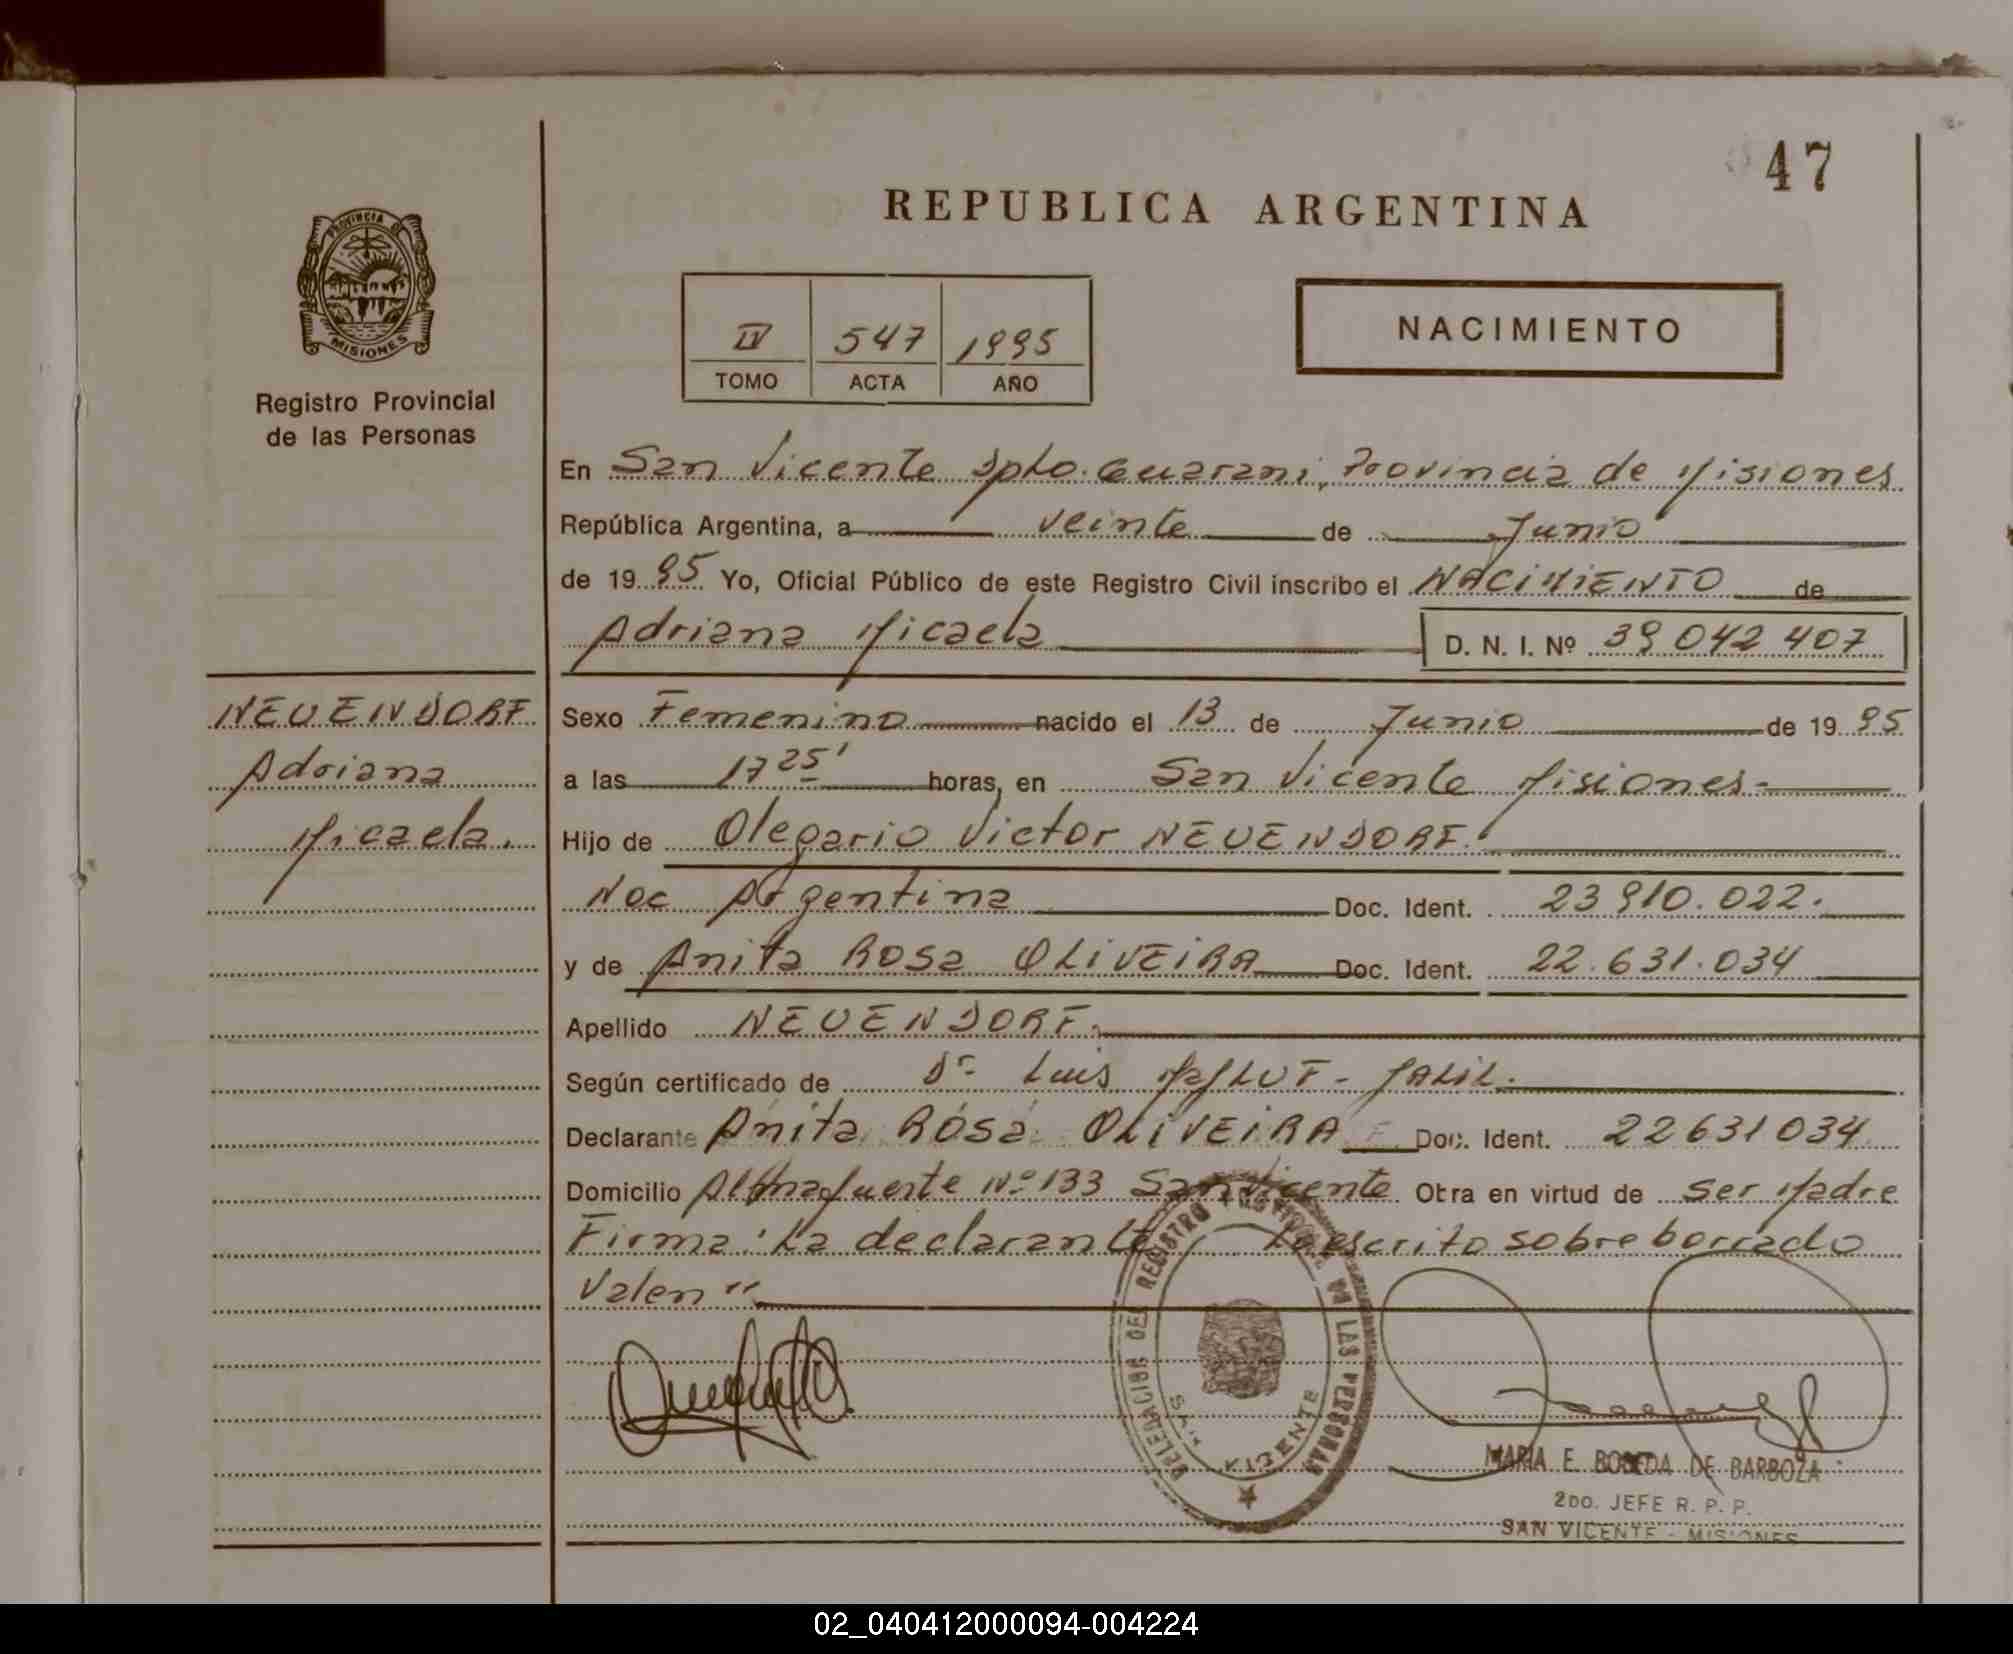 47
REPUBLICA ARGENTINA
PROVINCIA DE
MISIONES
Registro Provincial
de las Personas
IV 547 1995
TOMO ACTA AÑO
NACIMIENTO
En San Vicente Dpto. Guarani, Provincia de Misiones
República Argentina, a veinte de Junio
de 19 95 Yo, Oficial Público de este Registro Civil inscribo el NACIMIENTO de
Adriana Micaela D. N. I. Nº 39 042 407
NEUENDORF
Adriana
Micaela.
Sexo Femenino nacido el 13 de Junio de 19 95
a las 17 25' horas, en San Vicente Misiones-
Hijo de Olegario Victor NEUENDORF.
Nac Argentina Doc. Ident. 23 910.022.
y de Anita Rosa OLIVEIRA Doc. Ident. 22.631.034
Apellido NEUENDORF.
Según certificado de Dr Luis JALIL.
Declarante Anita Rosa OLIVEIRA Doc. Ident. 22631034
Domicilio Almafuerte Nº 133 San Vicente Otra en virtud de ser Madre
Firma: La declarante Lo escrito sobre borrado
Valen"
DELEGACION DEL REGISTRO PROVINCIAL DE LAS PERSONAS
SAN VICENTE
MARIA E. BOBEDA DE BARBOZA
2DO. JEFE R. P. P.
SAN VICENTE - MISIONES
02_040412000094-004224